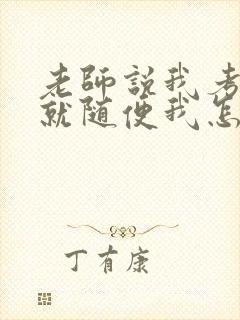 老師説我考
就随便我怎
丁有康